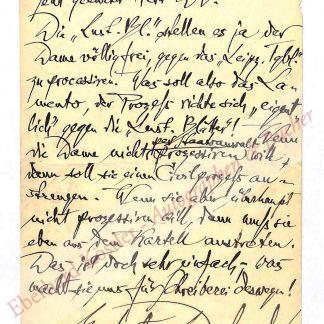 Die „Lust. Bl." stellen es ja der
Dame völlig frei, gegen das „Leipz. Tgbl."
zu processiren. Was soll also das La-
mento, der Prozeß richte sich „eigent
lich" gegen die „Lust. Blätter"! Wenn
die Dame nicht per Staatsanwalt prozessiren will,
dann soll sie einen Civilprozeß an-
strengen. Wenn sie aber überhaupt
nicht prozessiren will, dann muß sie
eben aus dem Kartell austreten.
Das ist doch sehr einfach – was
macht sie uns für Schreiberei deswegen!